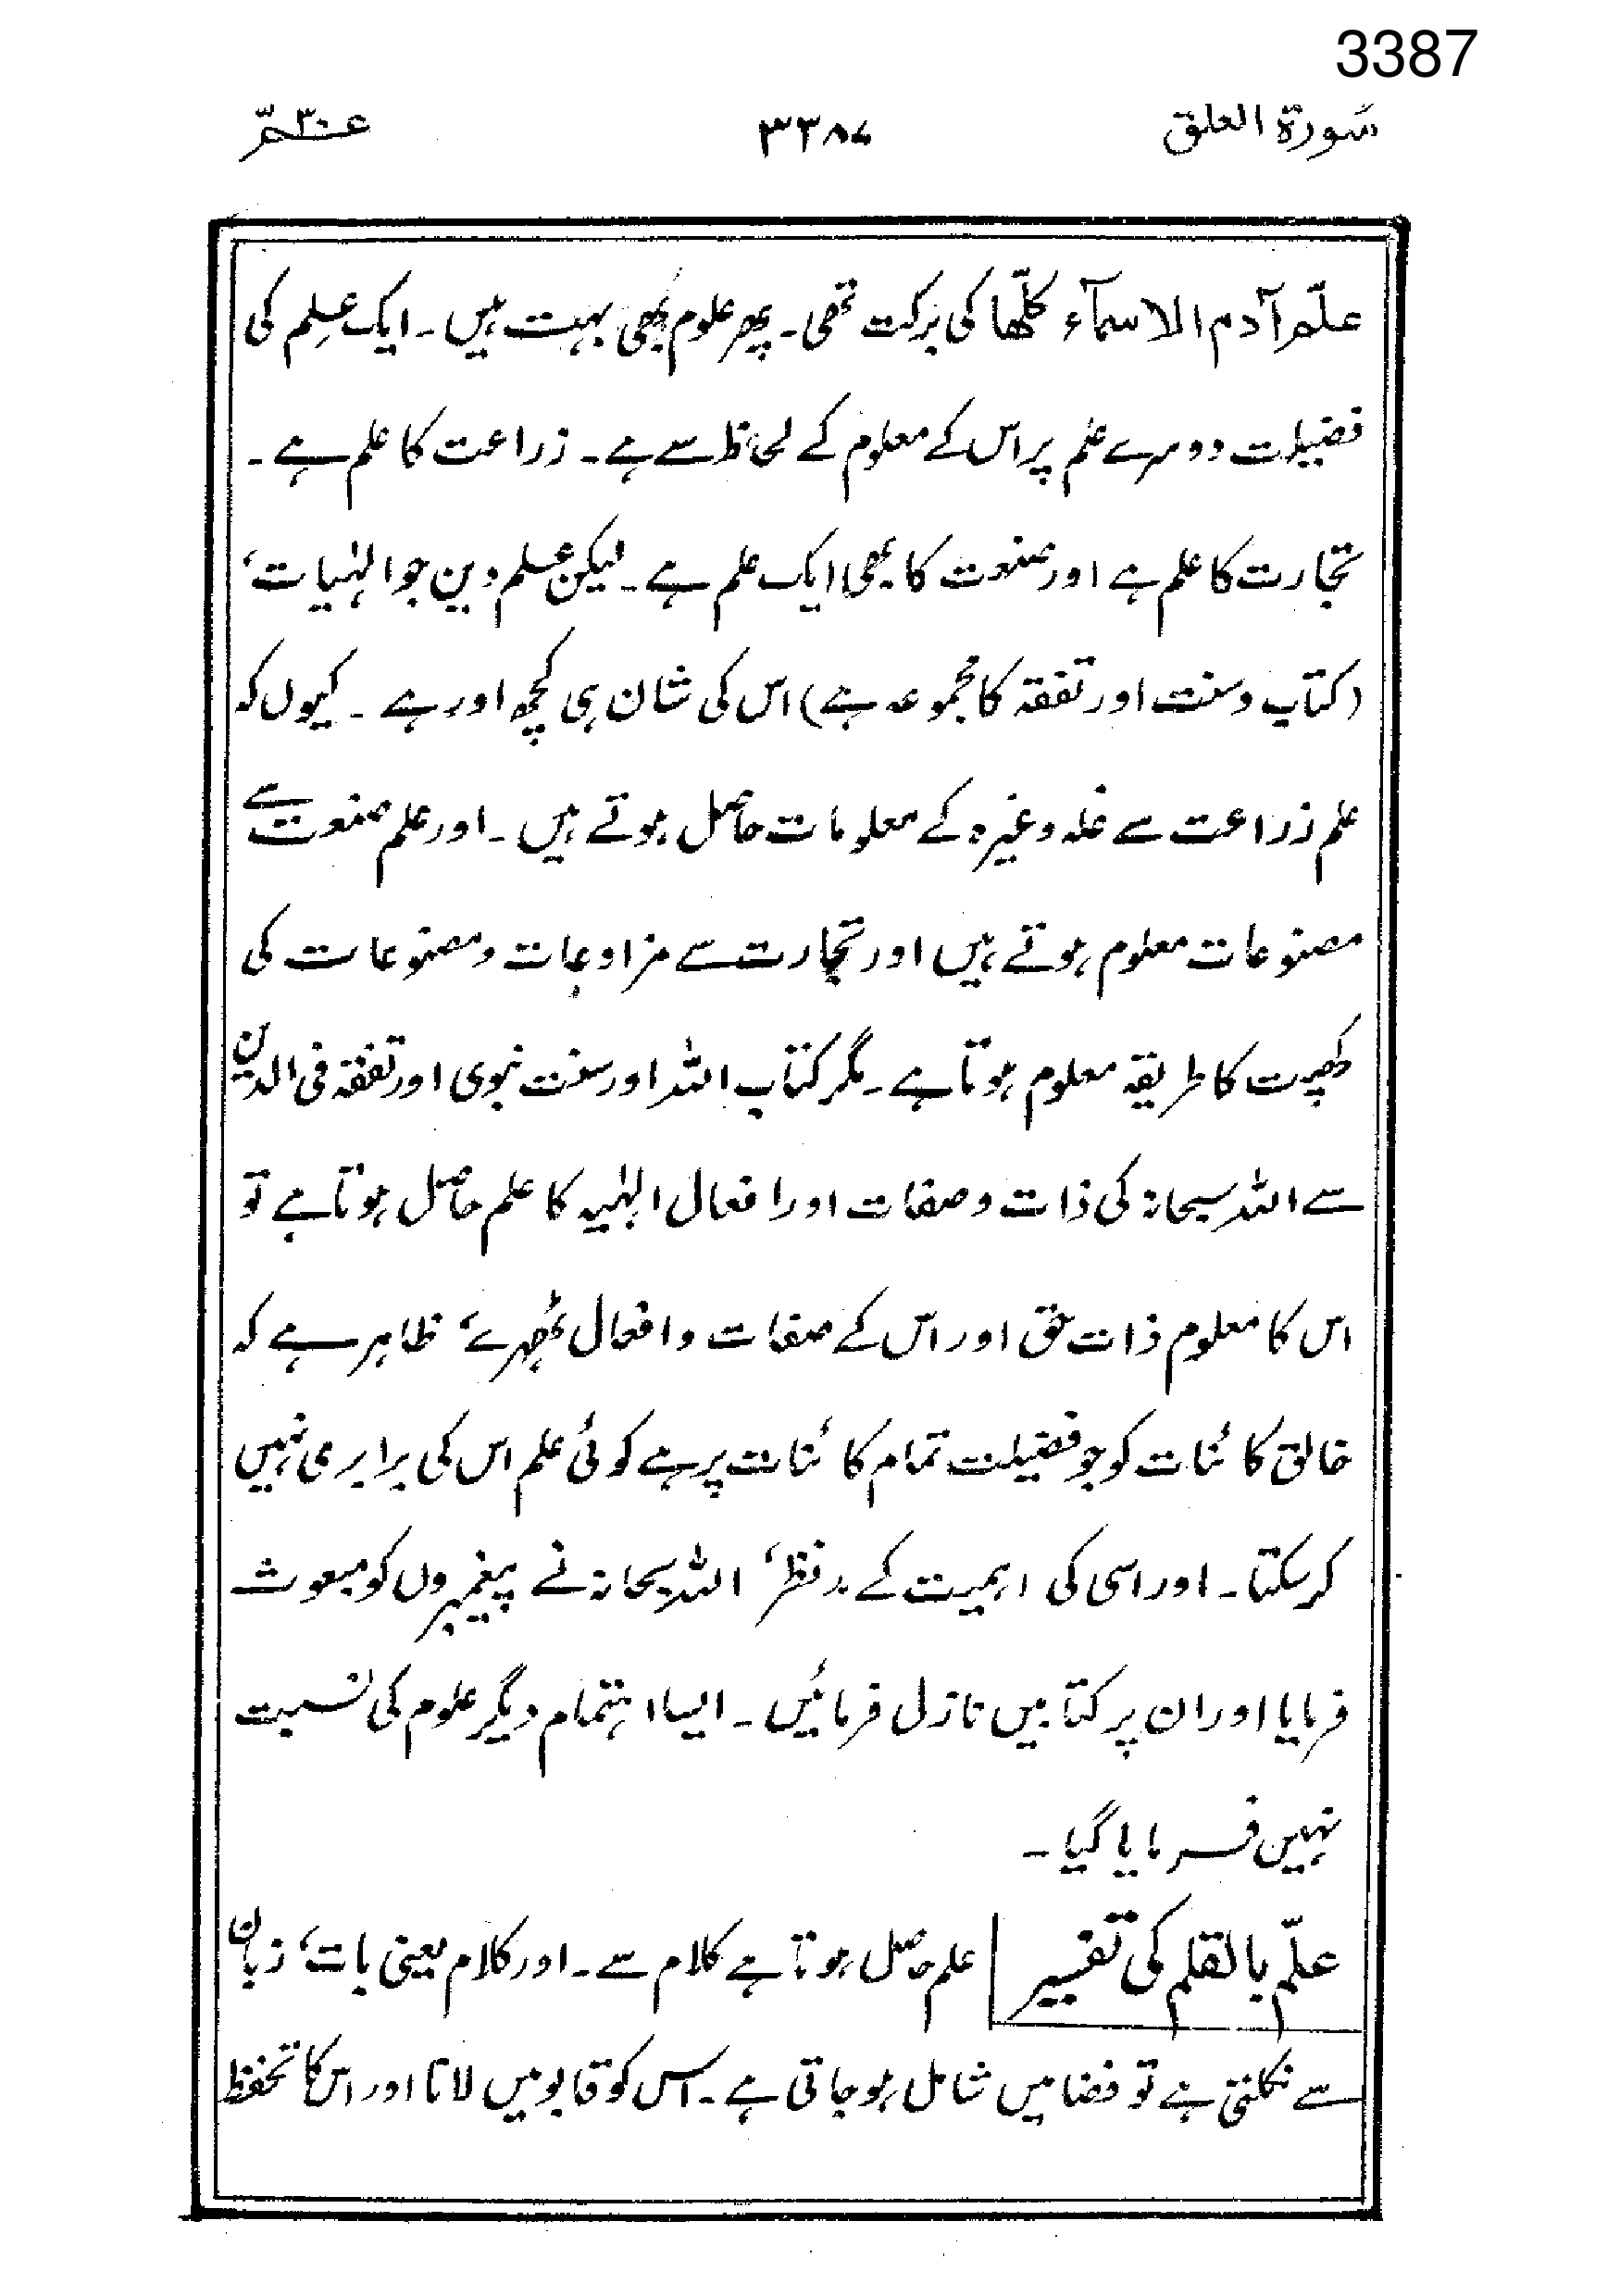 3387
سورۃ العلق ۳۳۸۷ عـــمّ ۳۰
علّم آدم الاسمآء کلّھا کی برکت تھی۔ پھر علوم بھی بہت ہیں۔ ایک علم کی
فضیلت دوسرے علم پر اس کے معلوم کے لحاظ سے ہے۔ زراعت کا علم ہے۔
تجارت کا علم ہے اور صنعت کا بھی ایک علم ہے۔ لیکن علم دین جو الہٰیات،
(کتاب وسنت اور تفقہ کا مجموعہ ہے) اس کی شان ہی کچھ اور ہے۔ کیوں کہ
علم زراعت سے غلہ وغیرہ کے معلومات حاصل ہوتے ہیں۔ اور علم صنعت سے
مصنوعات معلوم ہوتے ہیں اور تجارت سے مزاوعات ومصنوعات کی
کھپت کا طریقہ معلوم ہوتا ہے۔ مگر کتاب اللہ اور سنت نبوی اور تفقہ فی الدین
سے اللہ سبحانہ کی ذات وصفات اور افعال الہٰیہ کا علم حاصل ہوتا ہے تو
اس کا معلوم ذات حق اور اس کے صفات وافعال ٹھہرے، ظاہر ہے کہ
خالق کائنات کو جو فضیلت تمام کائنات پر ہے کوئی علم اس کی برابری نہیں
کر سکتا۔ اور اسی کی اہمیت کے مدنظر، اللہ سبحانہ نے پیغمبروں کو مبعوث
فرمایا اور ان پر کتابیں نازل فرمائیں۔ ایسا اہتمام دیگر علوم کی نسبت
نہیں فرمایا گیا۔
علّم بالقلم کی تفسیر علم حاصل ہوتا ہے کلام سے۔ اور کلام یعنی بات، زبان
سے نکلتی ہے تو فضا میں شامل ہو جاتی ہے۔ اس کو قابو میں لانا اور اس کا تحفظ